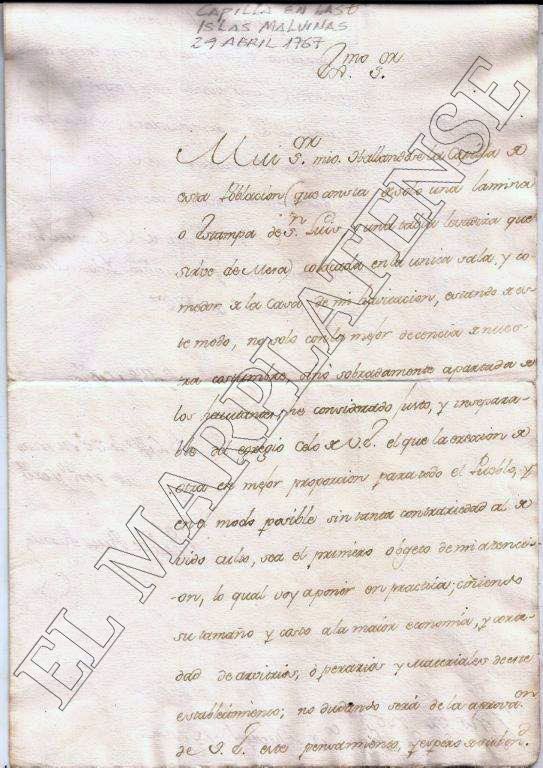 CAPILLA EN LAS
ISLAS MALVINAS
29 ABRIL 1767
S.
Mui S.or mio. Hallandose la Capilla de
esta Poblacion (que consta de solo una lamina
o Estampa de S.n Luis y una tabla
sirve de Mesa) colocada en la unica sala, y co-
medor de la Casa de mi havitacion, estando de es-
te modo, no solo con la mejor decencia de nues-
tra costumbre, sino sobradamente apartada de
los havitantes, he considerado justo, y insepara-
ble del egregio Celo de V.E. el que la ereccion de
otra en mejor proporcion para todo el Pueblo, y
en modo posible sin tanta contrariedad al de-
vido culto, sea el primero objeto de mi atenci-
on, lo qual voy a poner en practica; ciñiendo
su tamaño y costo a la maior economia, y
dad de arvitrios, operarios y Materiales de este
establecimiento; no dudando será de la aprova.on
de V.E. este pensamiento, y espero
EL MARPLATENSE